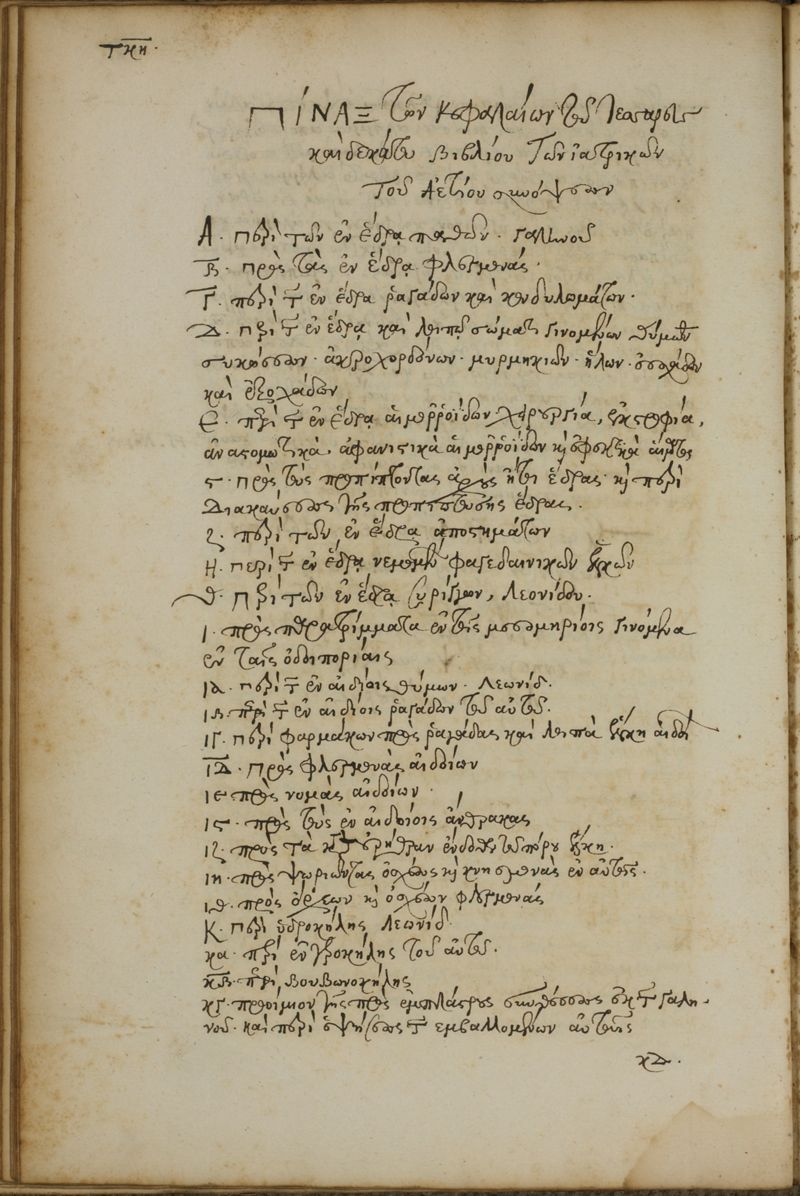 τκη·
ΠΙΝΑΞ τῶν κεφαλαίων τοῦ τεσσαρεσ
καὶ δεκάτου βιβλίου τῶν ἰατρικῶν
τοῦ Ἀετίου συνόψεων
Α· περὶ τῶν ἐν ἕδρᾳ παθῶν· γαληνοῦ
Β· πρὸς τὰς ἐν ἕδρᾳ φλεγμονάς·
Γ· περὶ τῶν ἐν ἕδρᾳ ῥαγάδων καὶ κονδυλωμάτων·
Δ· περὶ τῶν ἐν ἕδρᾳ καὶ λοιπῷ σώματι γινομένων θύμων
συκώσεων· ἀκροχορδόνων· μυρμηκιῶν· ἥλων· ἐσοχάδων
καὶ ἐξοχάδων
Ε· περὶ τῶν ἐν ἕδρᾳ αἱμοῤῥοΐδων χειρουργία,
ἀναστομωτικὰ, ἀφανιστικὰ αἱμοῤῥοΐδων καὶ
ς· πρὸς τοὺς προπίπτοντας ἀρχοὺς ἤτοι ἕδρας· καὶ περὶ
διακαύσεως τῆς προπιπτούσης ἕδρας·
ζ· περὶ τῶν ἐν ἕδρᾳ ἀποστημάτων
Η· περὶ τῶν ἐν ἕδρᾳ νεμομένων φαγεδαινικῶν ἑλκῶν
θ· περὶ τῶν ἐν ἕδρᾳ συρίγγων, Λεονίδου·
ι· πρὸς παρατρίμματα ἐν τοῖς μεσομηρίοις γινόμενα
ἐν ταῖς ὁδοιπορίαις
ια· περὶ τῶν ἐν αἰδοίοις θύμων· Λεωνίδ·
ιβ· περὶ τῶν ἐν αἰδοίοις ῥαγάδων τοῦ αὐτοῦ·
ιγ· περὶ φαρμάκων πρὸς ῥαγάδας καὶ λοιπὰ ἕλκη αἰδοί
ιδ· πρὸς φλεγμονὰς αἰδοίων
ιε πρὸς νομὰς αἰδοίων·
ις· πρὸς τοὺς ἐν αἰδοίοις ἄνθρακας
ιζ· πρὸς τὰ κατὰ οὐρήθραν ἔνδοθεν τοῦ πόρου ἕλκη·
ιη· πρὸς ψωριῶντας ὀσχέους καὶ κνησμονὰς ἐν αὐτοῖς·
ιθ· πρὸς ὄρχεων καὶ ὀσχέων φλεγμονάς
κ· περὶ ὑδροκήλης Λεωνίδ·
κα· περὶ ἐντεροκήλης τοῦ αὐτοῦ·
κβ· περὶ βουβωνοκήλης
κγ· προοίμιον τῆς πρὸς ἐμπλάστρους συνθέσεως ἐκ τῶν γαλη-
νοῦ· καὶ περὶ ἑψήσεως τῶν ἐμβαλλομένων αὐτοῖς
κδ·